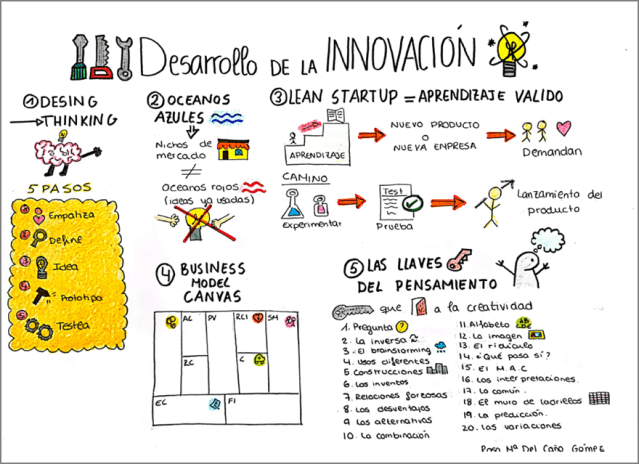 Desarrollo DE LA INNOVACIÓN
① DESING
THINKING
5 PASOS
Empatiza
Define
Idea
Prototipo
Testea
② OCEANOS
AZULES
Nichos de
mercado
≠
Oceanos rojos
(ideas ya usadas)
③ LEAN STARTUP = APRENDIZAJE VALIDO
APRENDIZAJE
NUEVO PRODUCTO
O
NUEVA EMPRESA
Demandan
CAMINO
Experimentar
Test
Prueba
Lanzamiento del
producto
④ BUSINESS
MODEL
CANVAS
AC PV RCI SM
RC C
EC FI
⑤ LAS LLAVES
DEL PENSAMIENTO
que a la creatividad
1. Pregunta ?
2. La inversa
3. El brainstorming
4. Usos diferentes
5. Construcciones
6. Los inventos
7. Relaciones forzosas
8. Las desventajas
9. Las alternativas
10. La combinación
11. Alfabeto
12. La imagen
13. El ridículo
14. ¿Qué pasa si?
15. El M.A.C
16. Las interpretaciones
17. Lo común
18. El muro de ladrillos
19. La predicción.
20. Las variaciones
Rosa Mª Del Caño